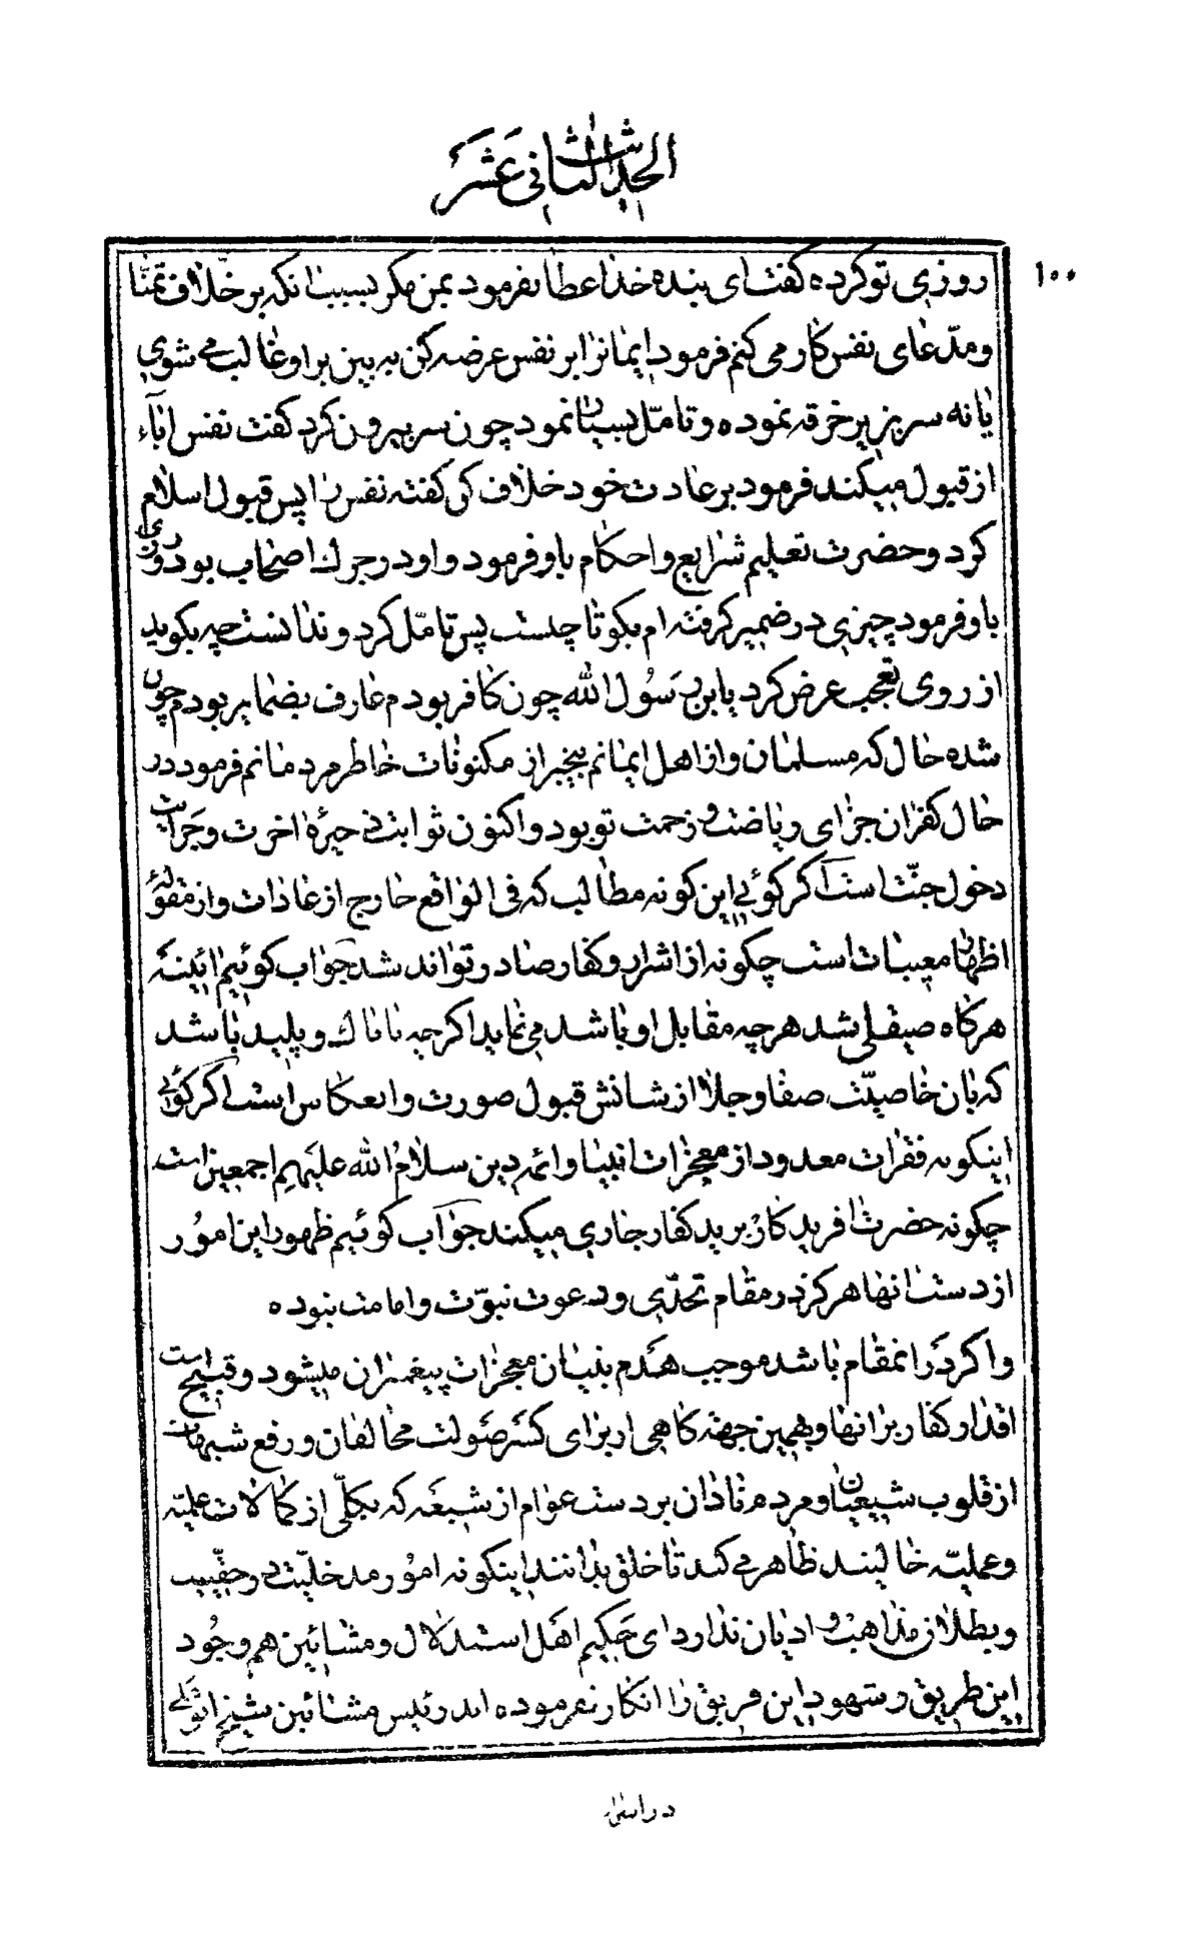 الحدیث الثانی عشر
۱۰۰
روزی تو کرده گفت ای بنده خدا عطا نفرمود بمن مگر بسبب انکه بر خلاف تمنّا
و مدّعای نفس کار می کنم فرمود ایمانرا بر نفس عرضه کن به بین براو غالب می شوی
یا نه سر بزیر خرقه نموده و تامّل بسیار نمود چون سر بیرون کرد گفت نفس اباء
از قبول میکند فرمود بر عادت خود خلاف کن گفته نفس را پس قبول اسلام
کرد و حضرت تعلیم شرایع و احکام باو فرمود و او در جرك اصحاب بود روزی
باو فرمود چیزی در ضمیر گرفته ام بگو تا چیست پس تامّل کرد و ندانست چه بگوید
از روی تعجب عرض کرد یابن رسول الله چون کافر بودم عارف بضمایر بودم چون
شده حال که مسلمان و از اهل ایمانم بیخبر از مکنونات خاطر مردمانم فرمود در
حال کفر ان جزای ریاضت و زحمت تو بود و اکنون ثوابت ذخیرهٔ اخرت و جزایت
دخول جنّت است اگر گوئی این گونه مطالب که فی الواقع خارج از عادات و از مقوله
اظهار مغیبات است چگونه از اشرار و کفار صادر تواند شد جواب گوئیم ائینه
هرگاه صیقلی شد هرچه مقابل او باشد می نماید اگرچه ناپاك و پلید باشد
که بان خاصیّت صفا و جلا از شانش قبول صورت و انعکاس است اگر گوئی
اینگونه فقرات معدود از معجزات انبیا و ائمه دین سلام الله علیهم اجمعین است
چگونه حضرت افریدگار بر ید کفار جاری میکند جواب گوئیم ظهور این امور
از دست انها هرگز در مقام تحدّی و دعوت نبوّت و امامت نبوده
و اگر در انمقام باشد موجب هدم بنیان معجزات پیغمبران میشود و قبیح است
اقدار کفار بر انها و بهمین جهة گاهی از برای کسر صولت مخالفان و رفع شبهات
از قلوب شیعیان و مردم نادان بر دست عوام از شیعه که بکلّی از کمالات علمیّه
و عملیّه خالیند ظاهر می کند تا خلق بدانند اینگونه امور مدخلیّت در حقّیت
و بطلان مذاهب و ادیان ندارد ای حکیم اهل استدلال و مشائین هم وجود
این طریق و شهود این فریق را انکار نفرموده اند رئیس مشائین شیخ ابو علی
در اشارات